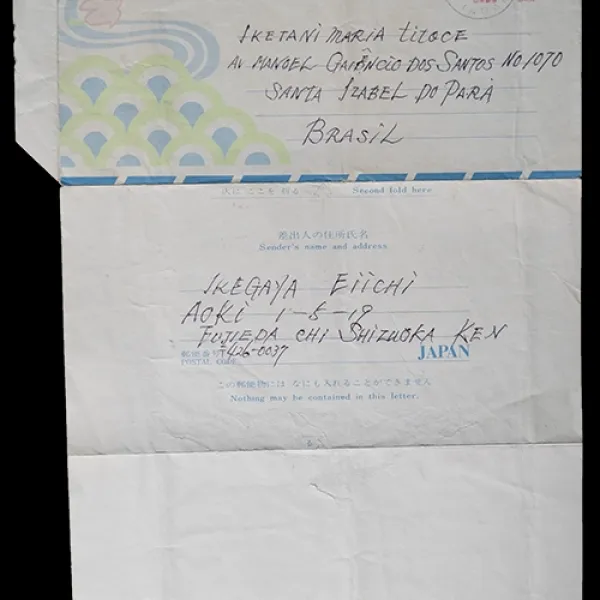 IKETANI MARIA TIZOCE
AV MANOEL GAIÂNCIO DOS SANTOS NO.1070
SANTA IZABEL DO PARÁ
BRASIL
次にここを折る Second fold here
差出人の住所氏名
Sender's name and address
IKEGAYA EIICHI
AOKI 1-5-19
FUJIEDA CHI SHIZUOKA KEN
郵便番号 〒426-0037 JAPAN
POSTAL CODE
この郵便物には なにも入れることができません
Nothing may be contained in this letter.